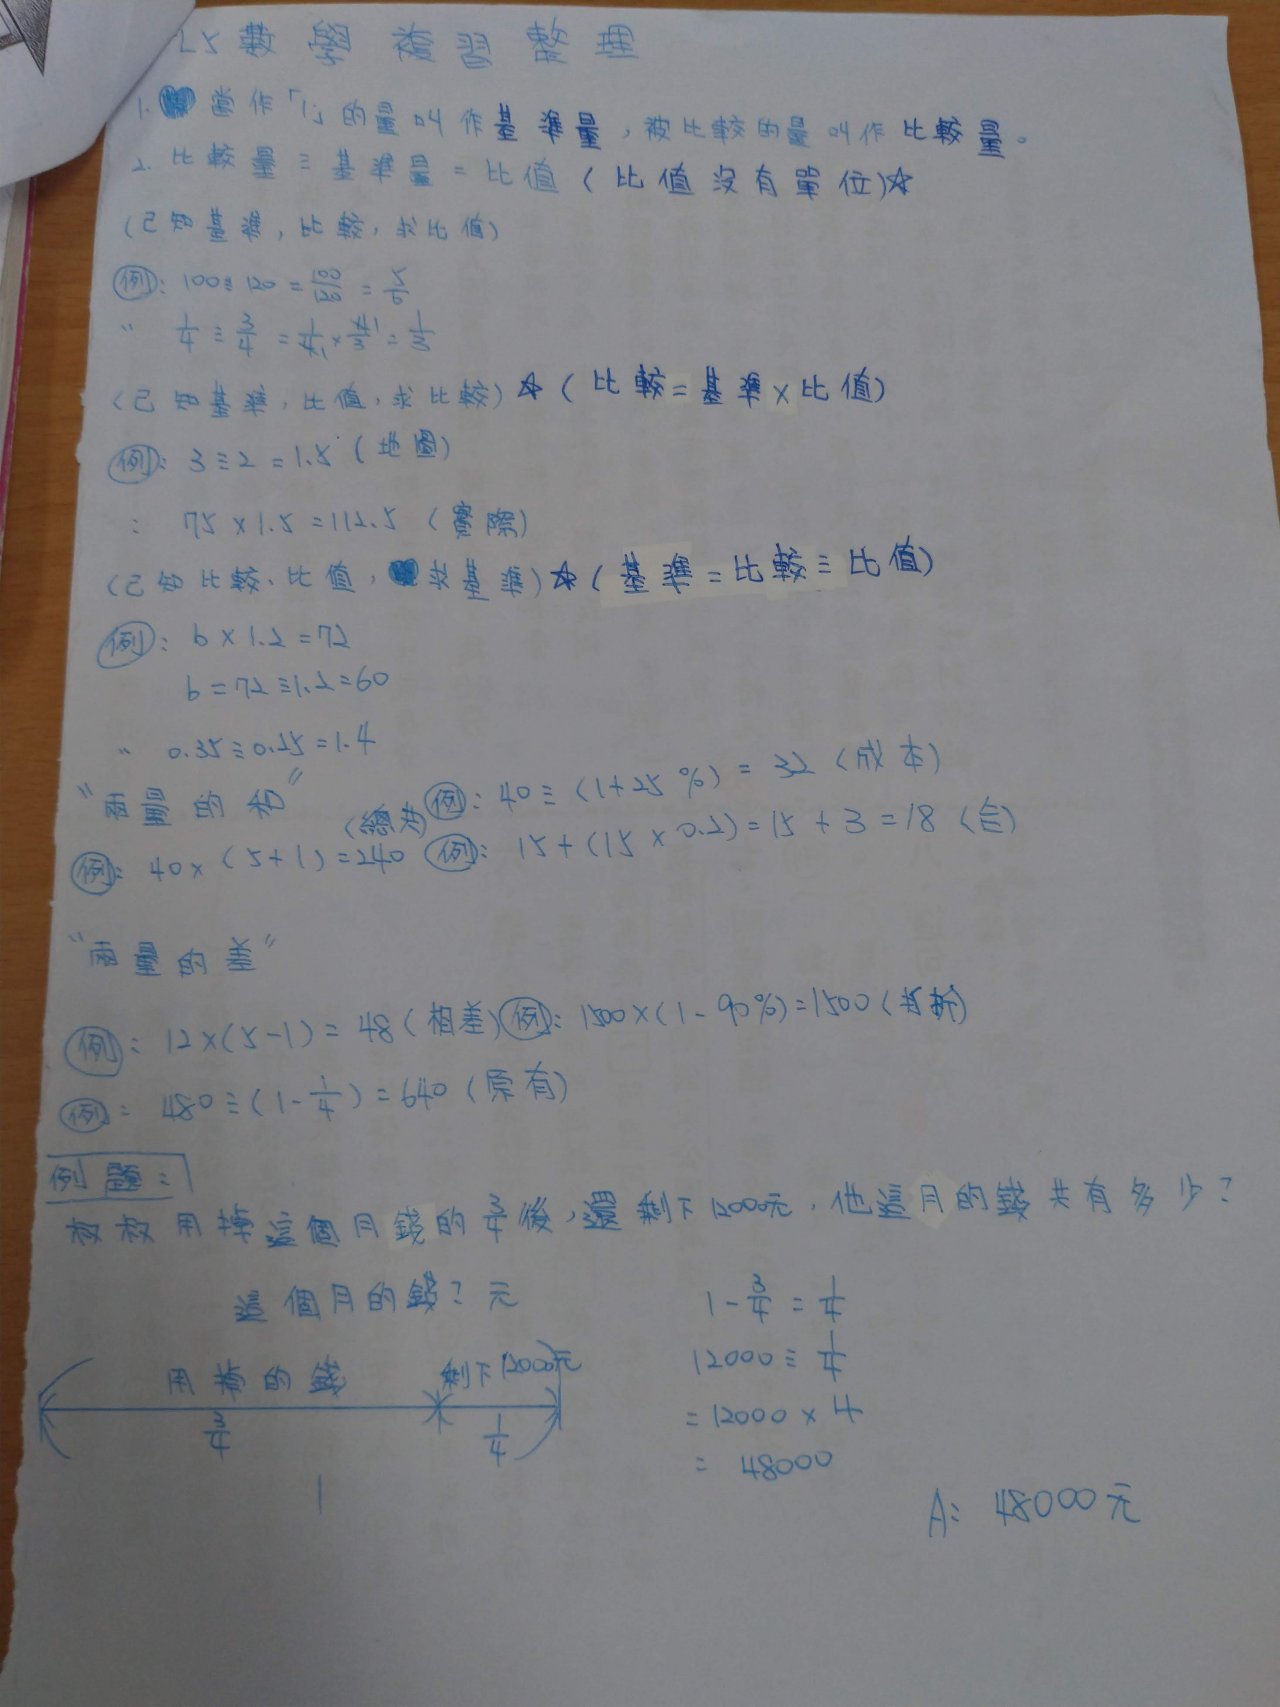 L5 數學複習整理
1. 當作「1」的量叫作基準量,被比較的量叫作比較量。
2. 比較量÷基準量=比值(比值沒有單位)☆
(已知基準,比較,求比值)
例: 100÷120=100/120=5/6
〃 1/4÷3/4=1/4×4/3=1/3
(已知基準,比值,求比較)☆(比較=基準×比值)
例: 3÷2=1.5(地圖)
: 75×1.5=112.5(實際)
(已知比較、比值,求基準)☆(基準=比較÷比值)
例: b×1.2=72
b=72÷1.2=60
〃 0.35÷0.25=1.4
"兩量的和"
例: 40÷(1+25%)=32(成本)
例: 40×(5+1)=240(總共)
例: 15+(15×0.2)=15+3=18(合)
"兩量的差"
例: 12×(5-1)=48(相差) 例: 1500×(1-90%)=1500(打折)
例: 480÷(1-1/4)=640(原有)
例題:
叔叔用掉這個月錢的3/4後,還剩下12000元,他這月的錢共有多少?
這個月的錢?元
用掉的錢 剩下12000元
3/4 1/4
1
1-3/4=1/4
12000÷1/4
=12000×4
= 48000
A: 48000元